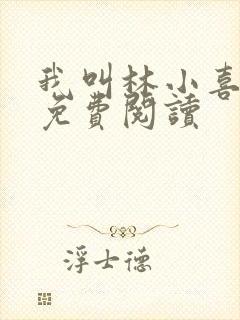 我叫林小喜
免費閱讀
浮士德